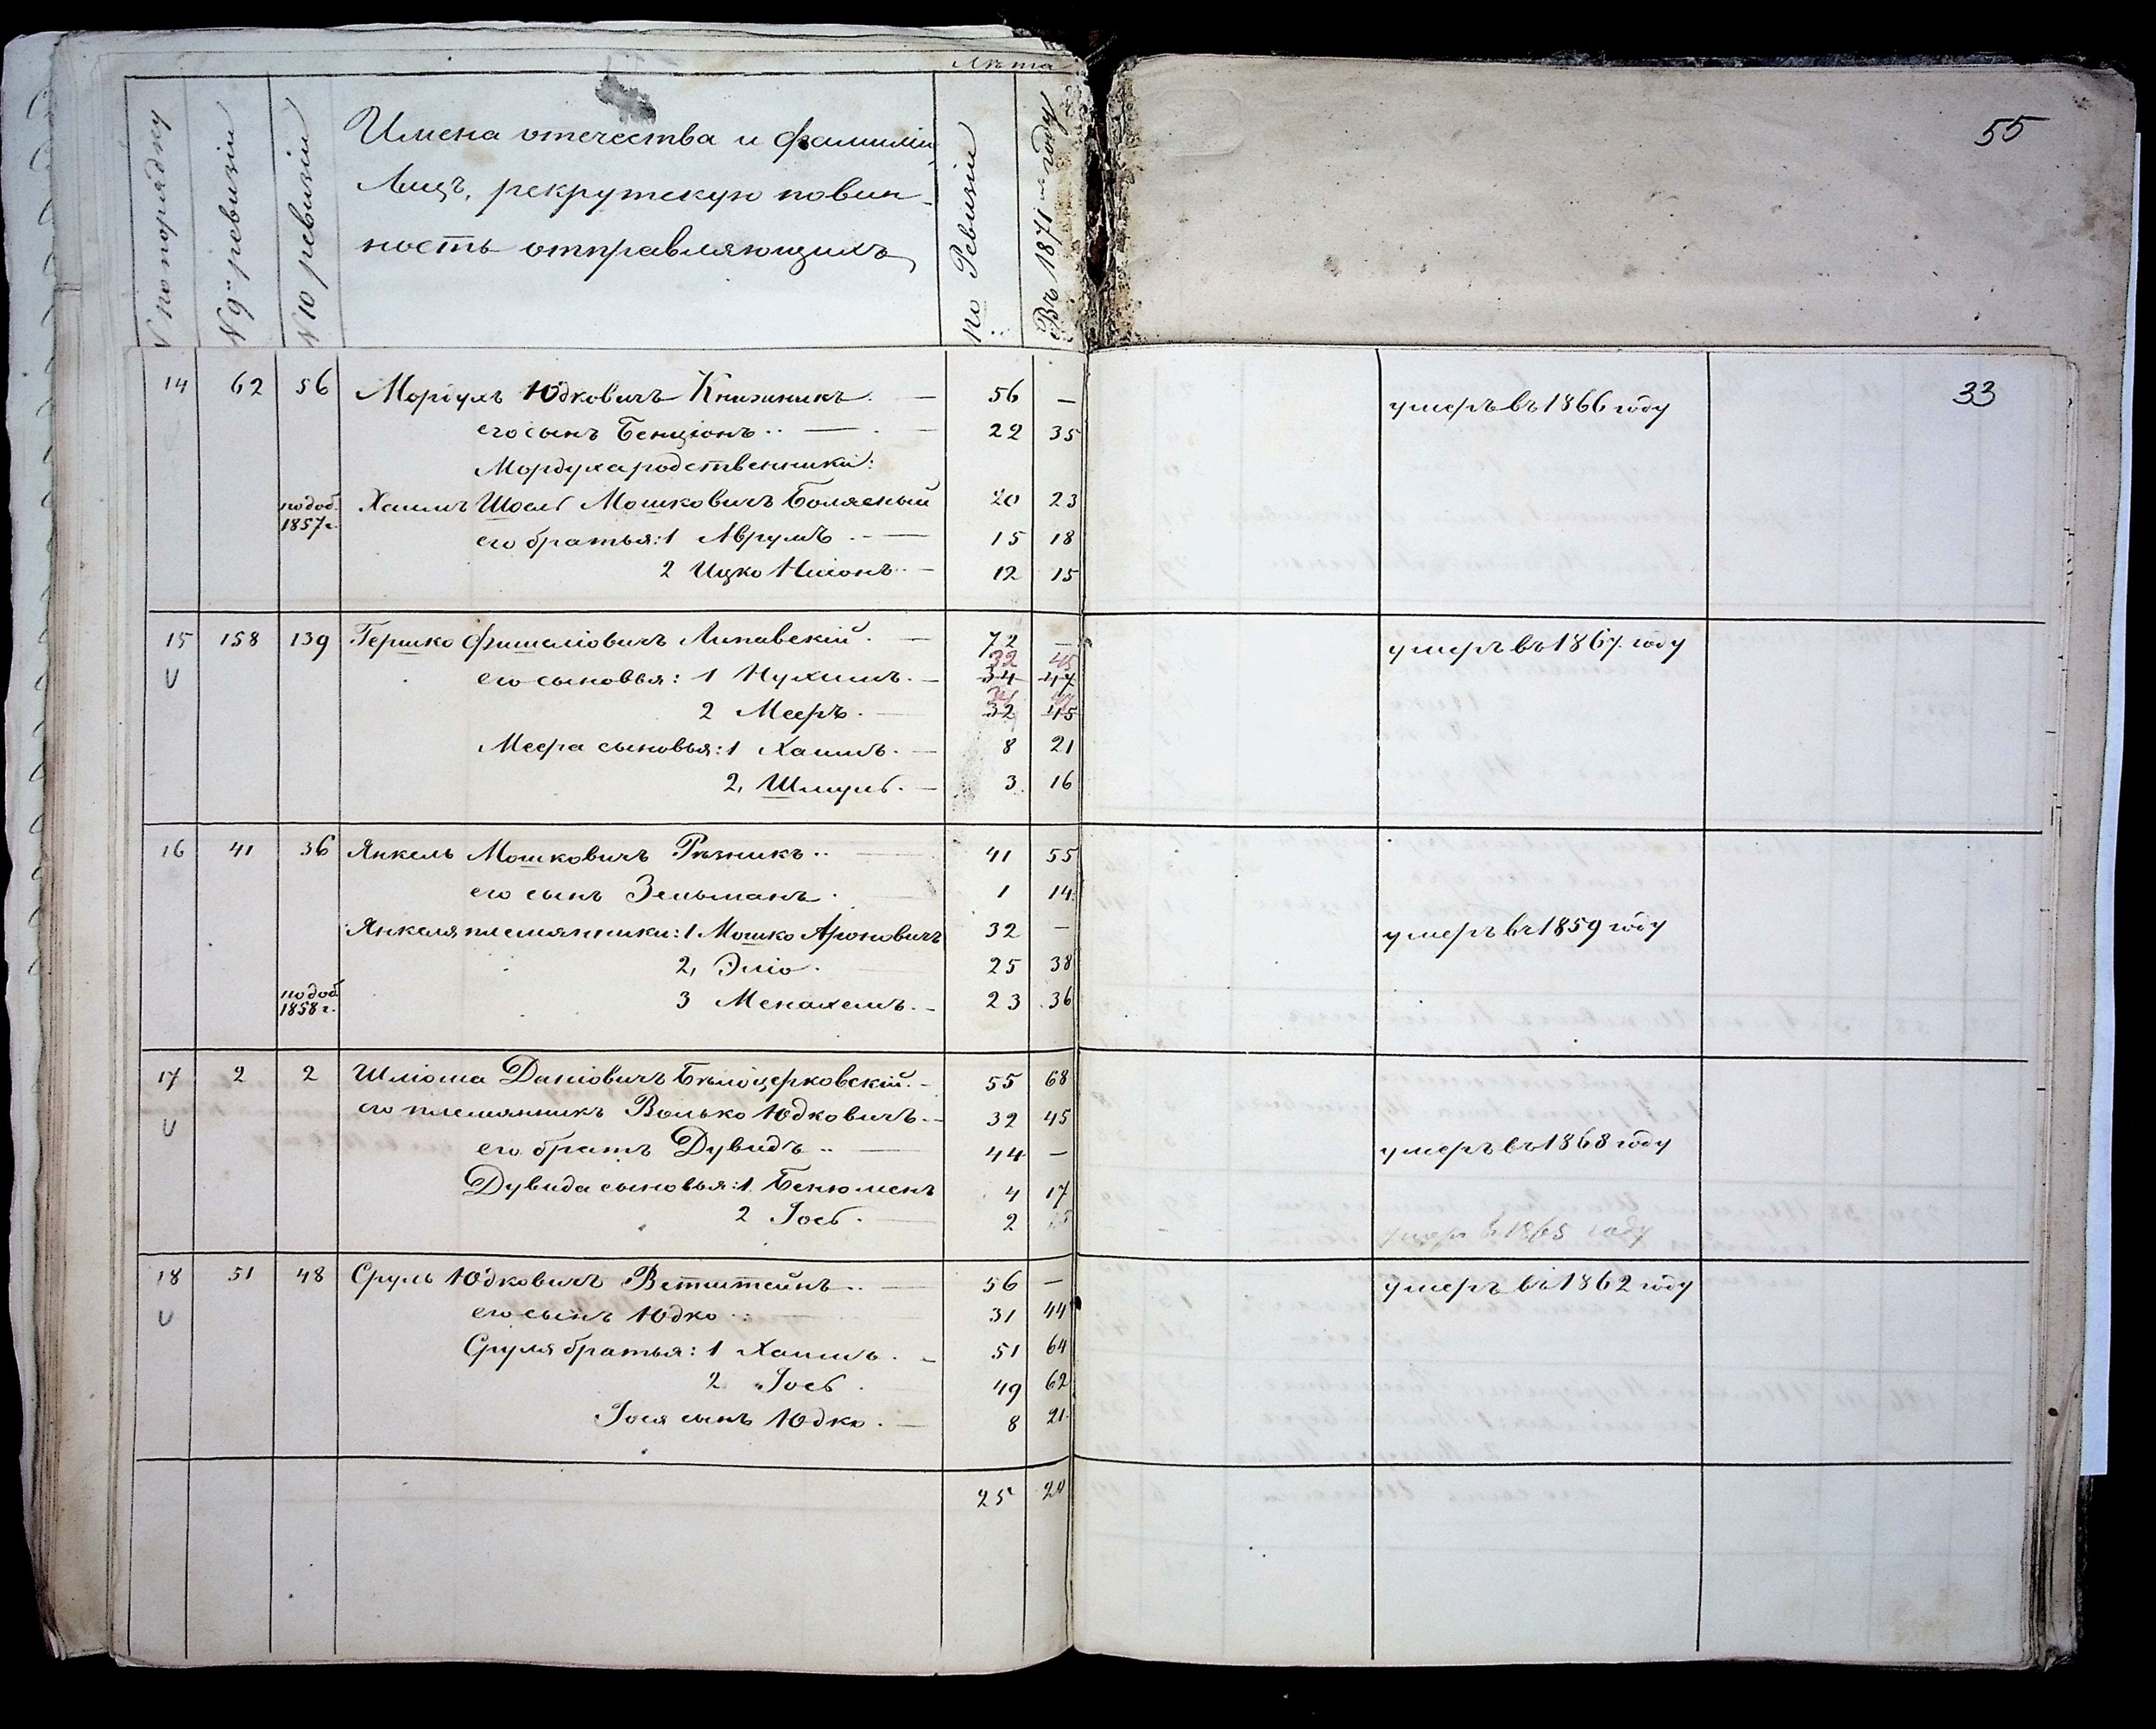 Лѣта
№ по порядку
№ 9й ревизіи
№ 10 ревизіи
Имена отечества и фамиліи
Лицъ, рекрутскую повин-
ность отправляющихъ
по Ревизіи
Въ 1871м году
55
14 62 56 Мордухъ Юдковичъ Книжникъ. — 56 — умеръ въ 1866 году 33
его сынъ Бенціонъ — 22 35
Мордуха родственники:
по доб. 1857 г. Хаимъ Шоель Мошковичъ Болясный 20 23
его братья: 1 Аврумъ — 15 18
2 Ицко Нисонъ — 12 15
15 158 139 Гершко Фишеліовичъ Липавскій. — 72 — умеръ въ 1867 году
32 45
V его сыновья: 1 Нухимъ. — 34 47
34 47
2 Мееръ. — 32 45
Меера сыновья: 1 Хаимъ. — 8 21
2, Шмуль. — 3 16
16 41 36 Янкель Мошковичъ Рѣзникъ — 41 55
его сынъ Зельманъ. 1 14
Янкеля племянники: 1 Мошко Ароновичъ 32 — умеръ въ 1859 году
2, Эліо. — 25 38
по доб 1858 г. 3 Менахемъ. — 23 36
17 2 2 Шліома Даніовичъ Бѣлоцерковскій. — 55 68
V его племянникъ Волько Юдковичъ. — 32 45
его братъ Дувидъ — 44 — умеръ въ 1868 году
Дувида сыновья: 1 Бенюменъ 4 17
2 Іось. — 2 15 умеръ въ 1865 году
18 51 48 Сруль Юдковичъ Ветштейнъ — 56 — умеръ въ 1862 году
V его сынъ Юдко — 31 44
Сруля братья: 1 Хаимъ. — 51 64
2 Іось. 49 62
Іося сынъ Юдко. — 8 21
25 20